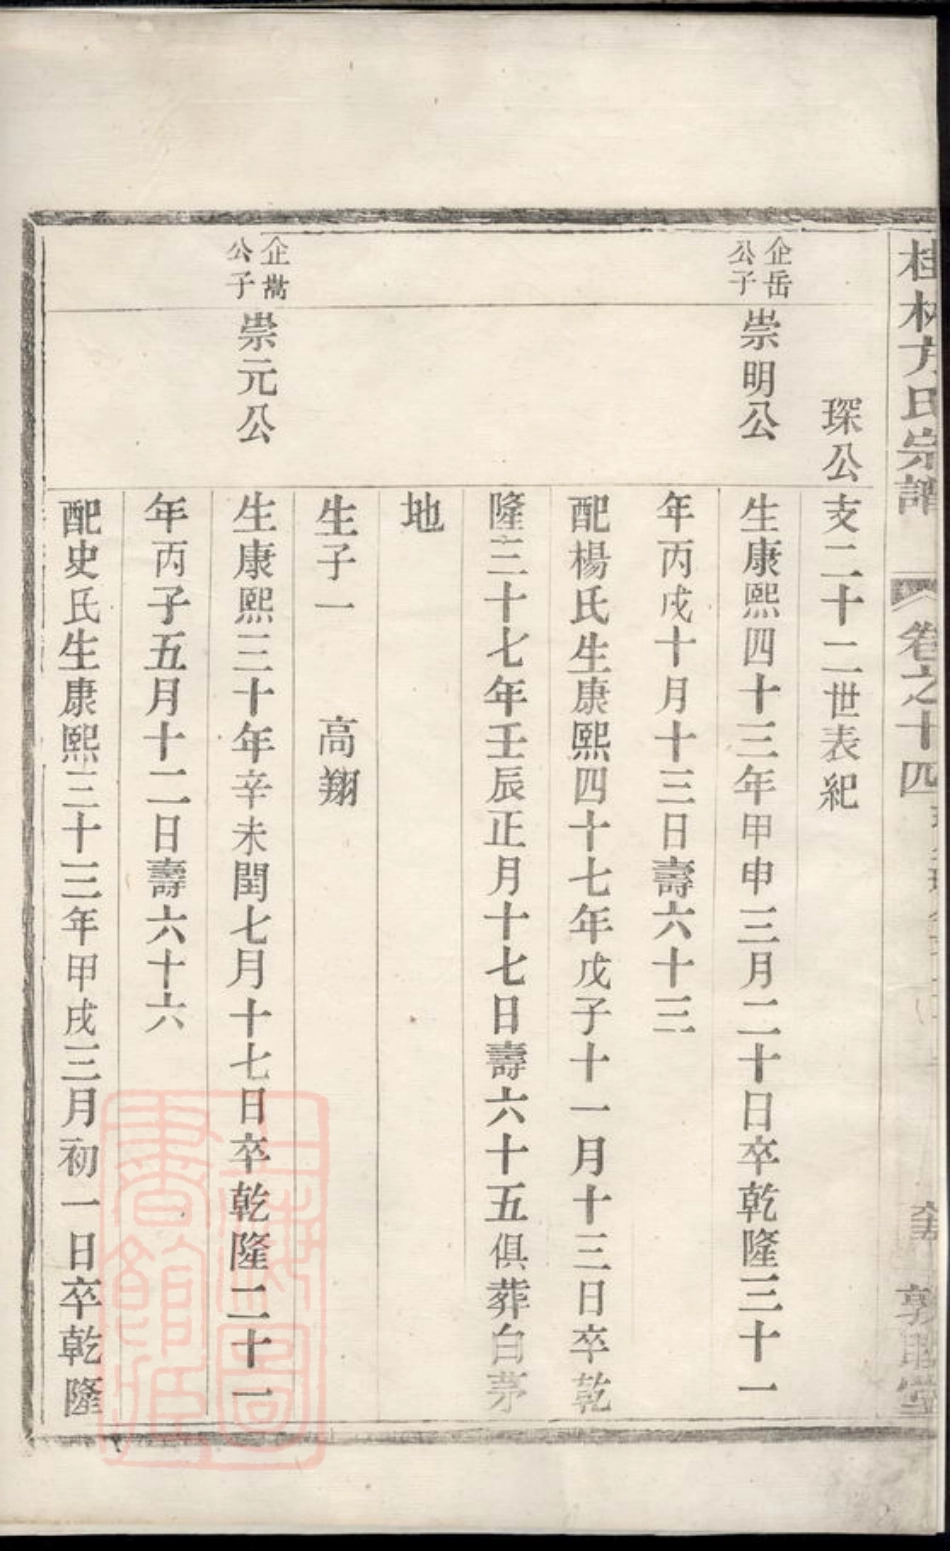 桂林方氏宗譜 卷之十四
琛公支二十二世表紀
企岳公子
崇明公
生康熙四十三年甲申三月二十日卒乾隆三十一
年丙戌十月十三日壽六十三
配楊氏生康熙四十七年戊子十一月十三日卒乾
隆三十七年壬辰正月十七日壽六十五俱葬白茅
地
生子一 高翔
企嵩公子
崇元公
生康熙三十年辛未閏七月十七日卒乾隆二十一
年丙子五月十二日壽六十六
配史氏生康熙三十三年甲戌三月初一日卒乾隆